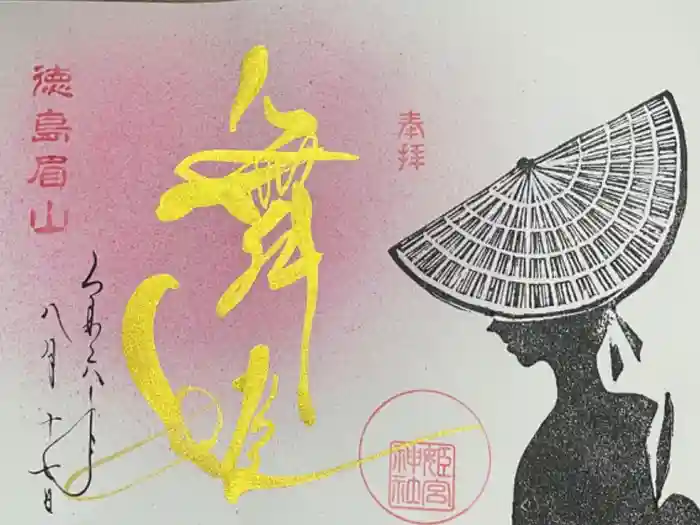 奉拝
舞姫
姫宮
神社
徳島眉山
令和六年
八月十七日